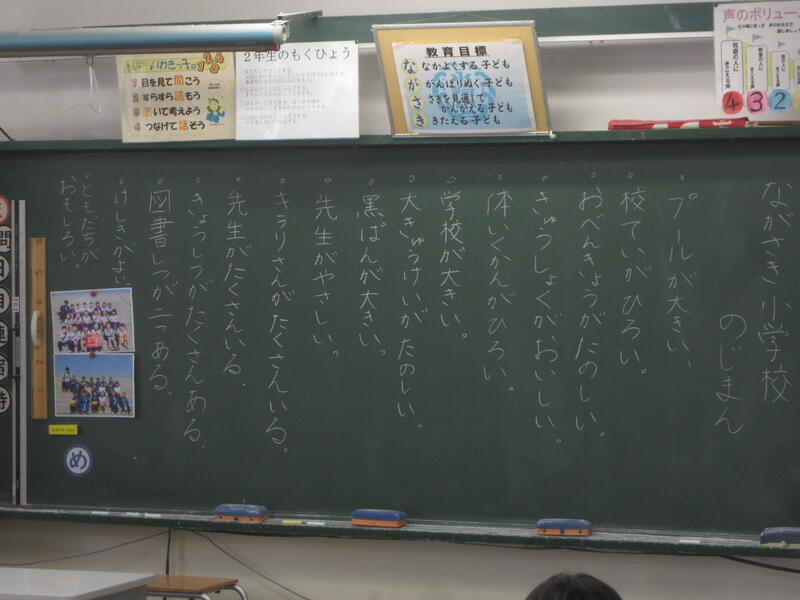 ２年生のもくひょう
1 目を見て聞こう
2 すらすら読もう
3 書いて考えよう
4 つなげて話そう
教育目標
なかよくする 子ども
がんばりぬく 子ども
さきを見通して
かんがえる 子ども
きたえる 子ども
声のボリュー
4
3
2
ながさき小学校
のじまん
。プールが大きい、
。校ていがひろい。
。おべんきょうがたのしい。
。きゅうしょくがおいしい。
。体いくかんがひろい。
。学校が大きい。
。大きゅうけいがたのしい。
。黒ばんが大きい。
。先生がやさしい。
。キラリさんがたくさんいる。
。先生がたくさんいる。
。きょうしつがたくさんある。
。図書しつが二つある、
。けしきがよい。
。ともだちが
おもしろい。
め
問